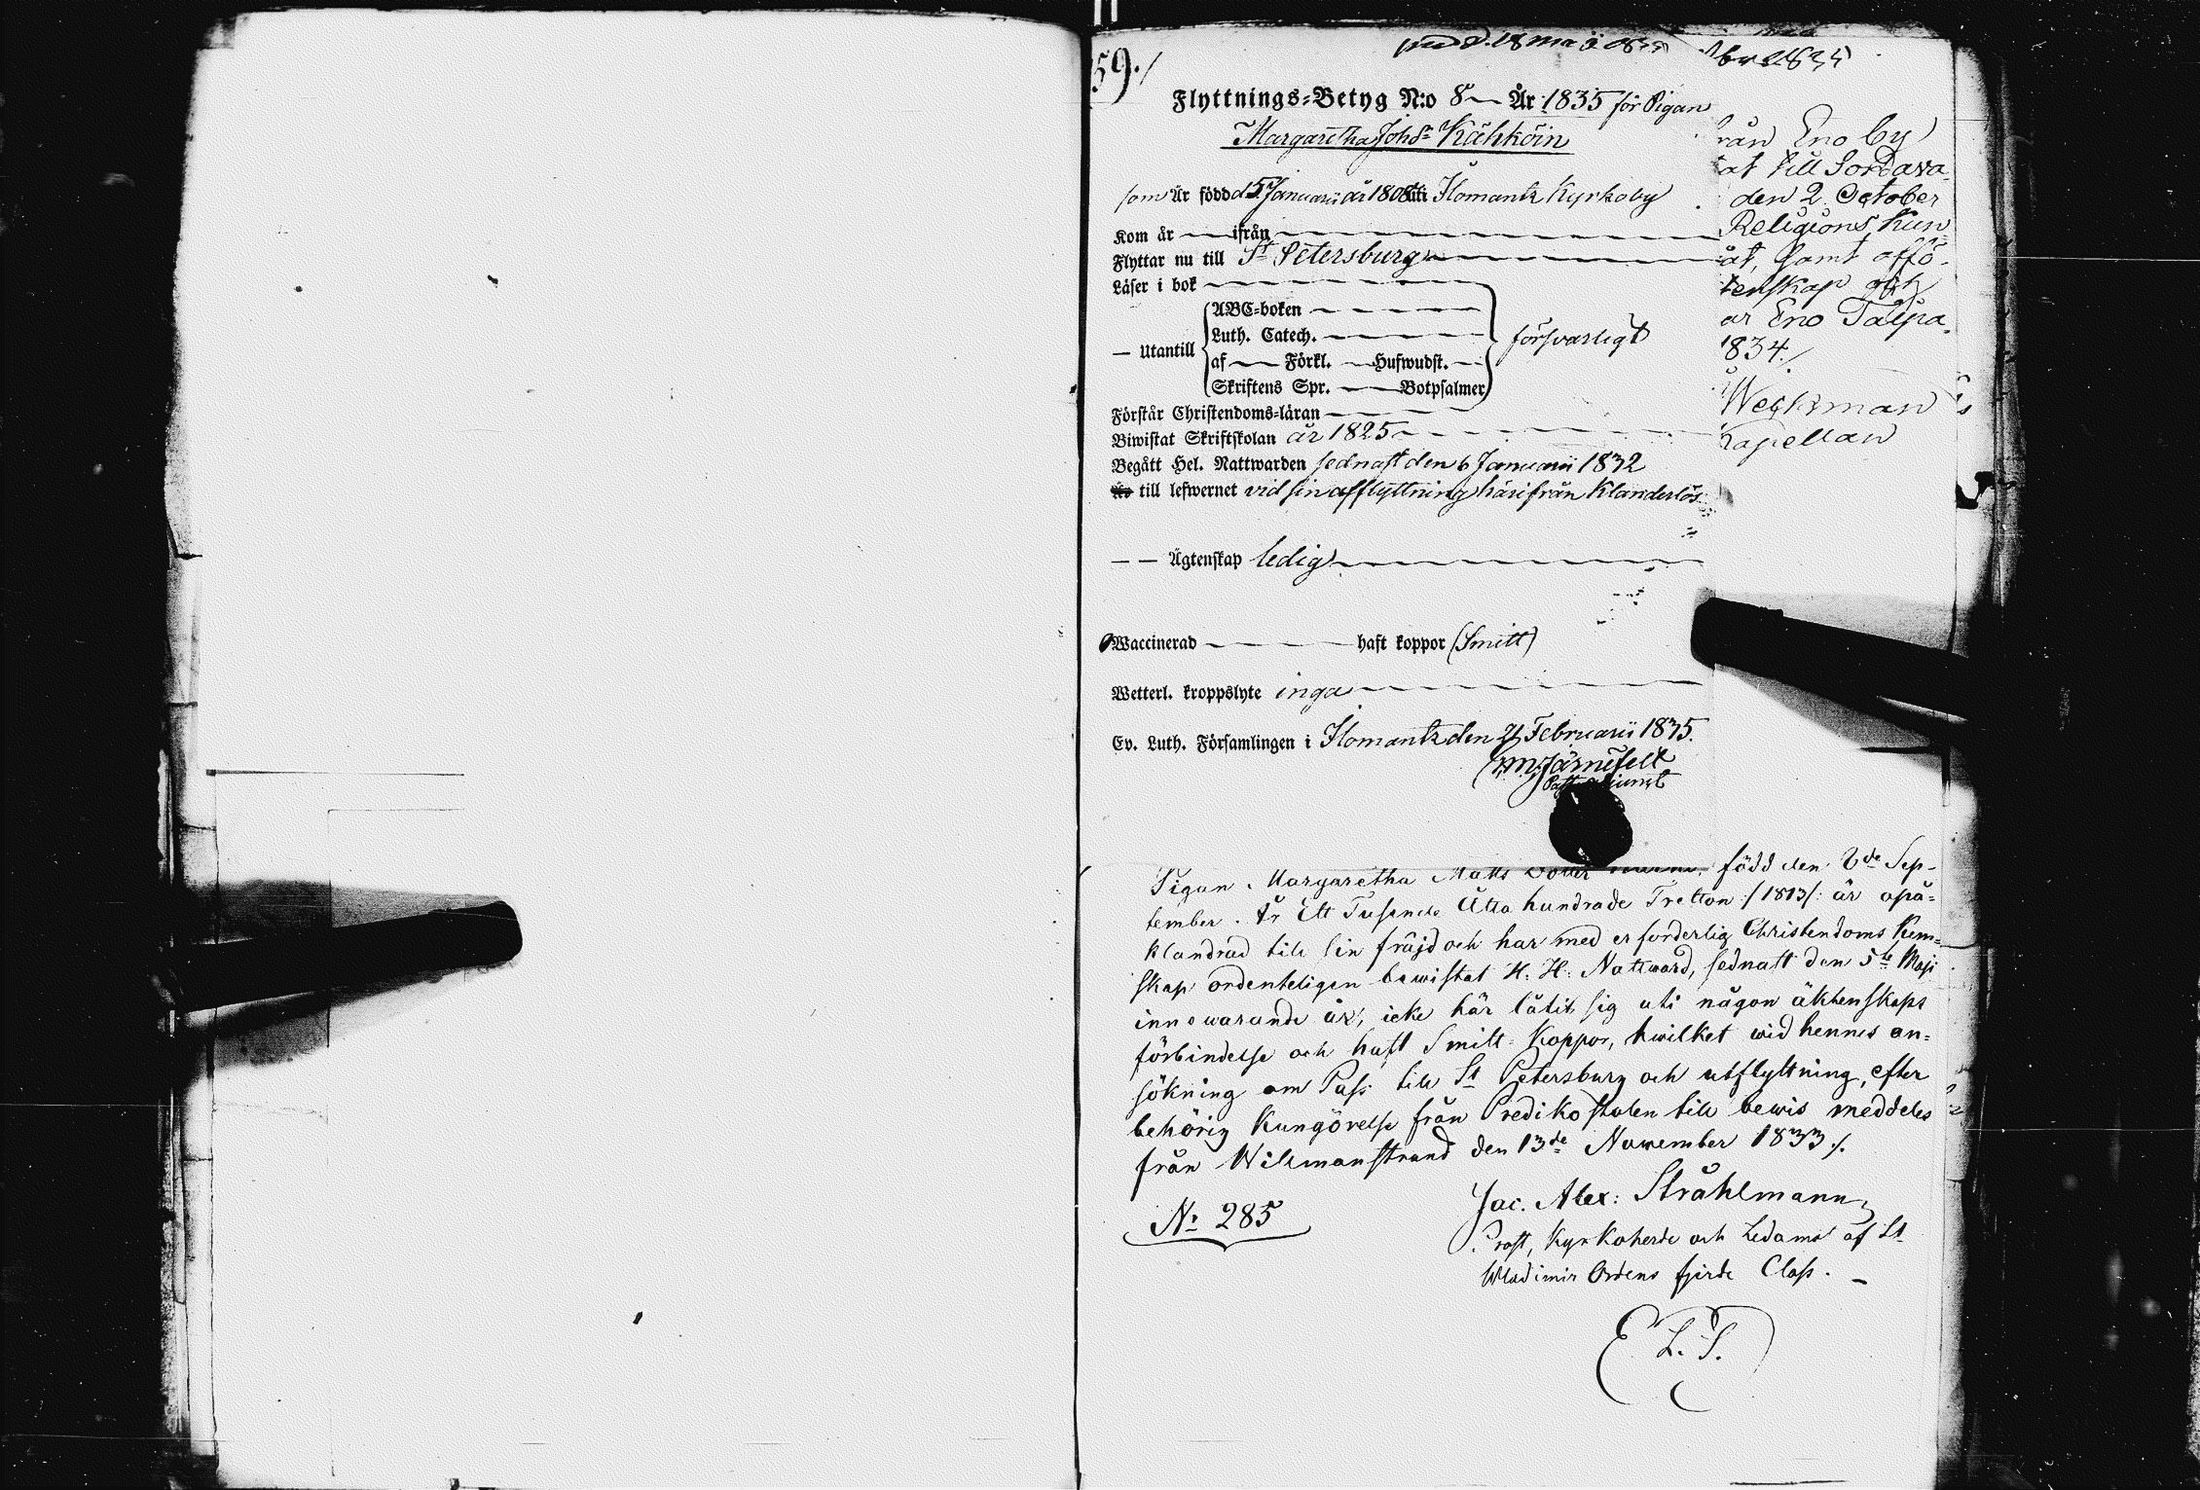 59./
Flyttnings-Betyg N:o 8 År 1835 för Pigan
Margaretha Johsr Kähköin
som Är född d 5 Januarii år 1808 uti Ilomants Kyrkoby
Kom år ifrån
Flyttar nu till St Petersburg
Läser i bok
— Utantill
ABC-boken
Luth. Catech.
af Förkl. Hufwudst.
Skriftens Spr. Botpsalmer
försvarligt
Förstår Christendoms-läran
Biwistat Skriftskolan år 1825
Begått Hel. Nattwarden sednast den 6 Januarii 1832
till lefwernet vid sin afflyttning härifrån Klanderlös
— — Ägtenskap ledig
Waccinerad haft koppor (Smitt)
Wetterl. kroppslyte inga
Ev. Luth. Församlingen i Ilomants den 21 Februarii 1835.
Järnefelt
rån Eno by
at till Sordava-
den 2 October
Religions Kun-
at, samt affö-
tenskap och
ar Eno
1834./
Weckman
Kapellan
Pigan Margaretha Matts Dotter född den 8de Sep-
tember. År Ett Tusende Åtta hundrade Tretton :/1813/: är opå-
klandrad till sin fräjd och har med erforderlig Christendoms Kun-
skap ordenteligen bewistat H. H. Nattward, sednast den 5te Maji
innewarande år, icke här låtit sig uti någon äktenskaps
förbindelse och haft Smitt-Koppor, hwilket wid hennes an-
sökning om Pass till St Petersburg och utflyttning, efter
behörig Kungörelse från Predikostolen till bewis meddeles
från Wilmanstrand den 13de November 1833./.
No 285
Jac. Alex: Stråhlmann
Prost, Kyrkoherde och Ledamot af St
Wladimir Ordens fjerde Class. —
L. S.